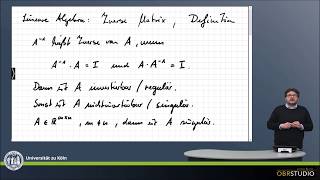 Lineare Algebra: Inverse Matrix, Definition
A⁻¹ heißt Inverse von A, wenn
A⁻¹ · A = I und A · A⁻¹ = I.
Dann ist A invertierbar / regulär.
Sonst ist A nichtinvertierbar / singulär.
A ∈ ℝᵐˣⁿ, m ≠ n, dann ist A singulär.
Universität zu Köln
OBRSTUDIO